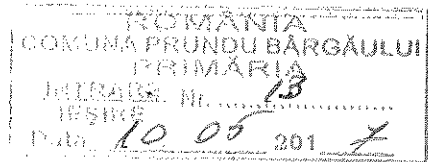 ROMÂNIA
COMUNA PRUNDU BÂRGĂULUI
PRIMĂRIA
INTRARE
IEŞIRE Nr. 13
Data 10 05 201